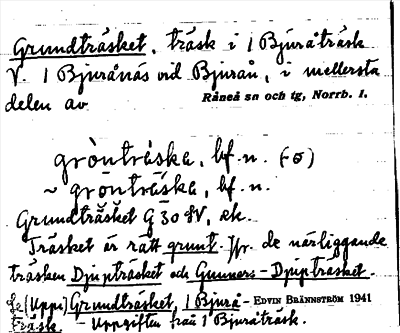 Grundträsket, träsk i 1 Bjuråträsk
V. 1 Bjurånäs vid Bjurån, i mellersta
delen av
Råneå sn och tg, Norrb. l.
grònträska, bf. n. (-ö)
~ grönträ́ska, bf. n.
Grundträsket G 30 SV, ek.
Träsket är rätt grunt. Jfr. de närliggande
träsken Djupträsket och Gunnars-Djupträsket.
Se (Uppm) Grundträsket, 1 Bjurå-
träsk - Uppgiften från 1 Bjuråträsk.
EDVIN BRÄNNSTRÖM 1941